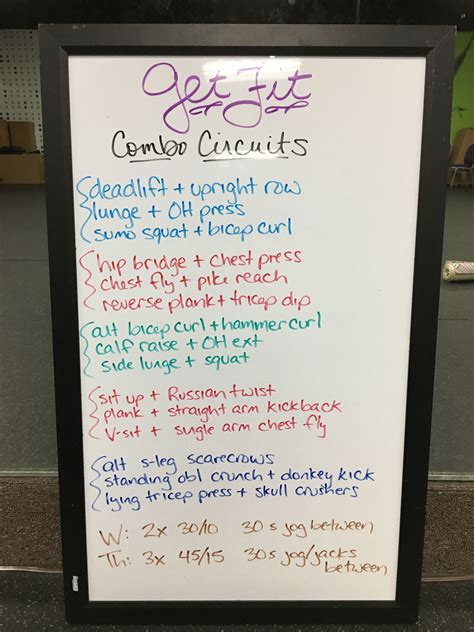 Get Fit
Combo Circuits
deadlift + upright row
lunge + OH press
sumo squat + bicep curl
hip bridge + chest press
chest fly + pike reach
reverse plank + tricep dip
alt bicep curl + hammer curl
calf raise + OH ext
side lunge + squat
sit up + Russian twist
plank + straight arm kickback
V-sit + single arm chest fly
alt s-leg scarecrows
standing obl crunch + donkey kick
lying tricep press + skull crushers
W: 2x 30/10 30s jog between
Th: 3x 45/15 30s jog/jacks
between